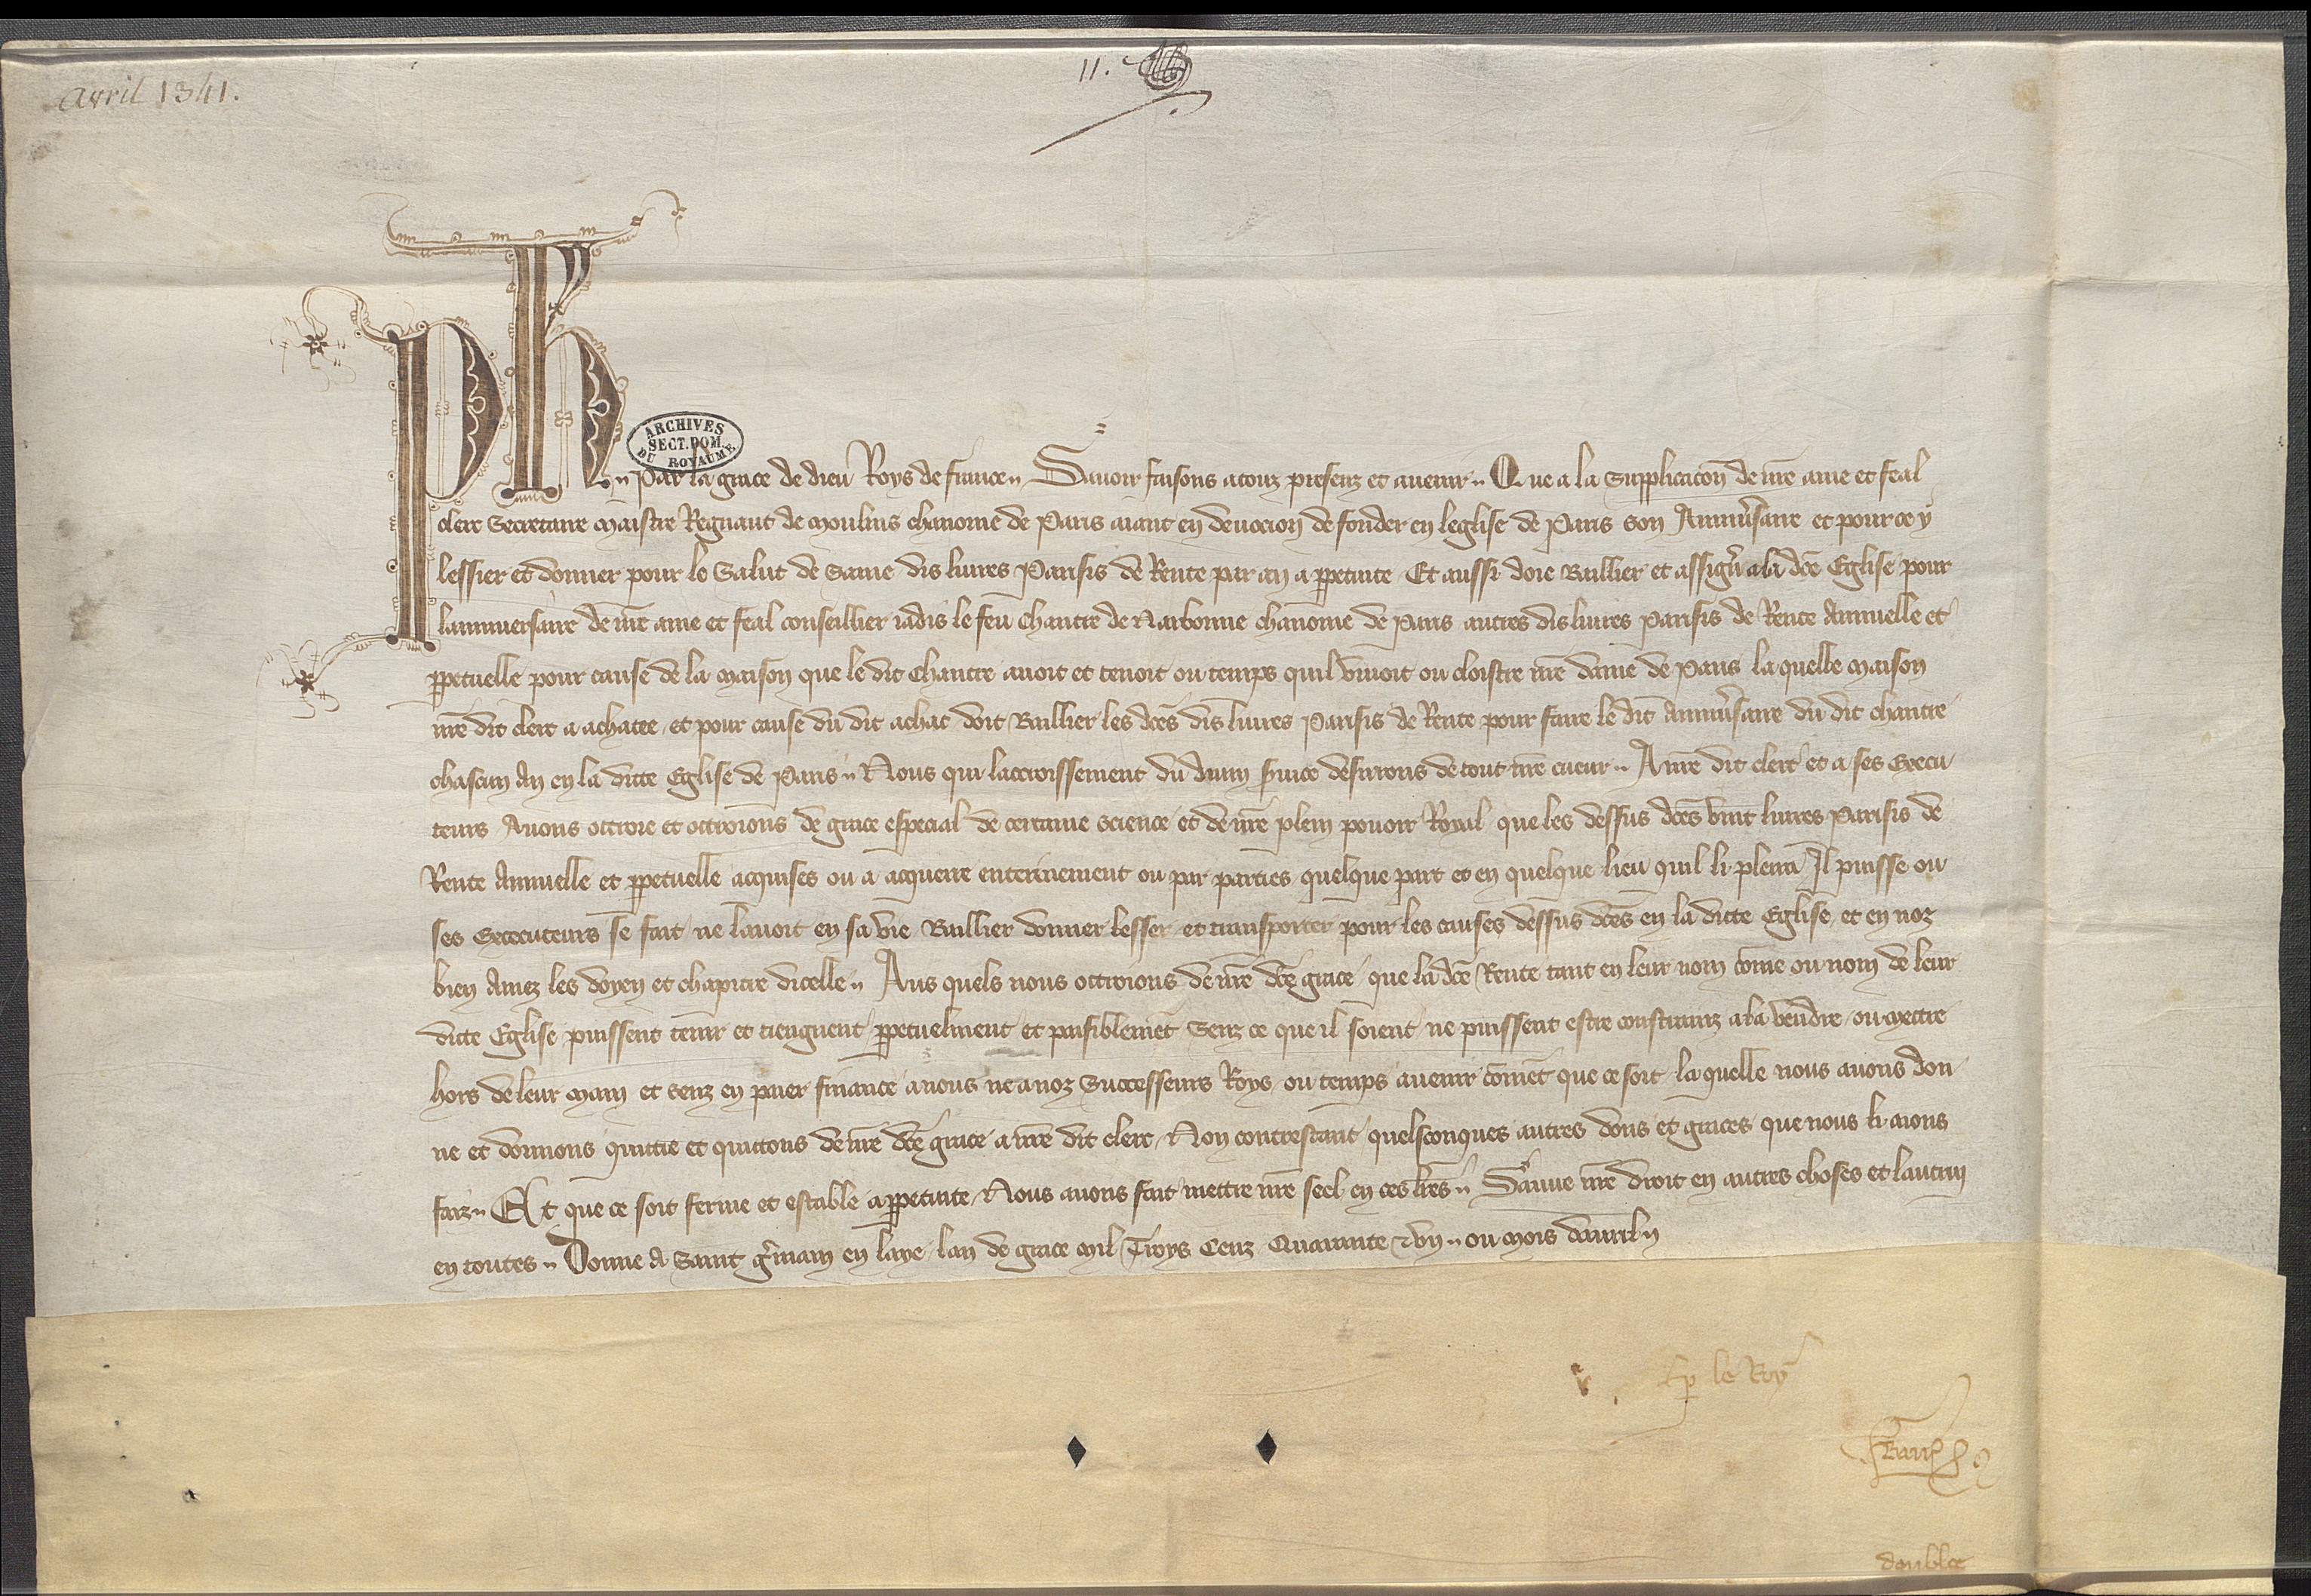 avril 1341.
11.
Ph
ARCHIVES
SECT. DOM.
DU ROYAUME
par la grace de dieu Roys de france Savoir faisons a touz presenz et avenir Que a la Supplicacōn de nr̄e ame et feal
clerc Secretaire maistre Regnaut de moulins chanoine de Paris aiant en devocion de fonder en leglise de Paris son Anniv̄saire et pour ce y
lessier et donner pour le Salut de Same dis livres Parisis de Rente par an a p̄petuite Et aussi doie Baillier et assign̄ a la dc̄e Eglise pour
lanniversaire de nr̄e ame et feal conseillier iadis le feu Chantre de Narbonne chanoine de Paris autres dis livres Parisis de Rente Annuelle et
p̄petuelle pour cause de la maison que le dit Chantre avoit et tenoit ou temps quil vivoit ou cloistre nr̄e dame de Paris la quelle maison
nr̄e dit clerc a achatee et pour cause du dit achat doit Baillier les dc̄es dis livres Parisis de Rente pour faire le dit Anniv̄saire du dit chantre
chascun An en la dicte Eglise de Paris Nous qui lacroissement du divin s̄vice desirrons de tout nr̄e cueur A nr̄e dit clerc et a ses Execu
teurs Avons ottroie et ottroions de grace especial de certaine science et de nr̄e plein povoir Royal que les dessus dc̄es vint livres Parisis de
Rente Annuelle et p̄petuelle acquises ou a acquerre enterinement ou par parties quelque part et en quelque lieu quil li plaira Il puisse ou
ses Executeurs se fait ne lavoit en sa vie Baillier donner lesser et transporter pour les causes dessus dc̄es en la dicte Eglise et en noz
bien Amez les doyen et chapitre dicelle Aus quels nous ottroions de nr̄e dc̄e grace que la dc̄e Rente tant en leur nom cōme ou nom de leur
dicte Eglise puissent tenir et tiengnent p̄petuelment et paisiblemēt Senz ce que il soient ne puissent estre constrainz a la vendre ou mettre
hors de leur main et senz en paier finance a nous ne a noz Successeurs Roys ou temps avenir cōmēt que ce soit laquelle nous avons don
ne et donnons quittie et quittons de nr̄e dc̄e grace a nr̄e dit clerc Non contrestant quelsconques autres dons et graces que nous li aions
faiz Et que ce soit ferme et estable a p̄petuite Nous avons fait mettre nr̄e seel en ces lr̄es Sauve nr̄e droit en autres choses et lautruy
en toutes Donne A Saint Ḡmain en laye lan de grace mil Troys Cenz Quarante & un ou mois davril
p̄ le Roy
double